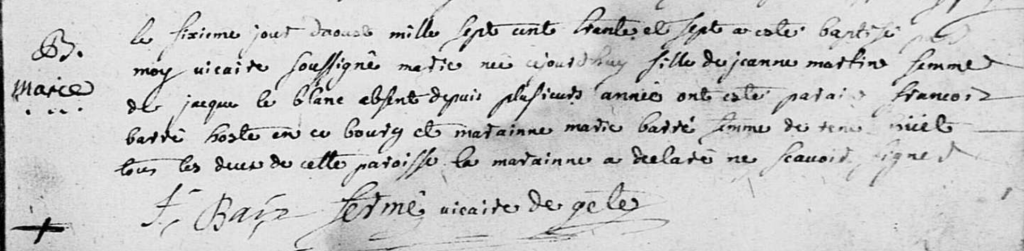 B.
marie
le sixieme jour daoust mille sept cent trante et sept a este baptisé
moy vicaire soussigné marie née ejourdhuy fille de jeanne martine femme
de jacque le blanc absent depuis plusieurs annee ont este parain francois
barré hoste en ce bourg et marainne marie barré femme de rene
tous les deux de cette paroisse la marainne a declaré ne scavoir signer
fermé vicaire de